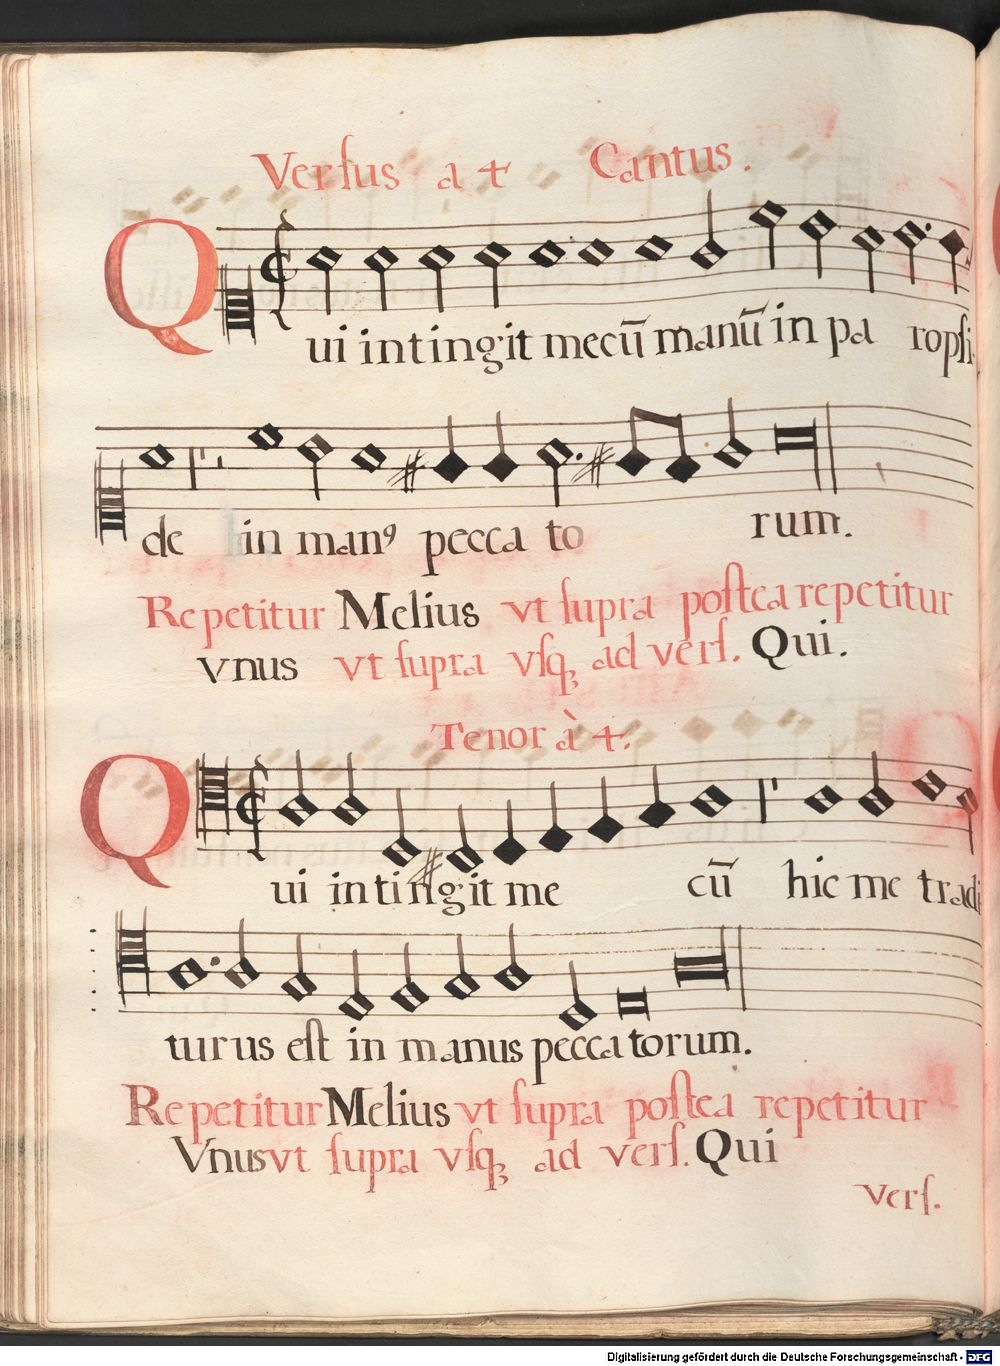 Versus a 4 Cantus.
Qui intingit mecū manū in pa ropsi
de in manꝰ pecca to rum.
Repetitur Melius vt supra postea repetitur
vnus vt supra vsqꝫ ad vers. Qui.
Tenor à 4.
Qui intingit me cū hic me tradi
turus est in manus peccatorum.
Repetitur Melius vt supra postea repetitur
Vnus vt supra vsqꝫ ad vers. Qui
vers.
Digitalisierung gefördert durch die Deutsche Forschungsgemeinschaft - DFG